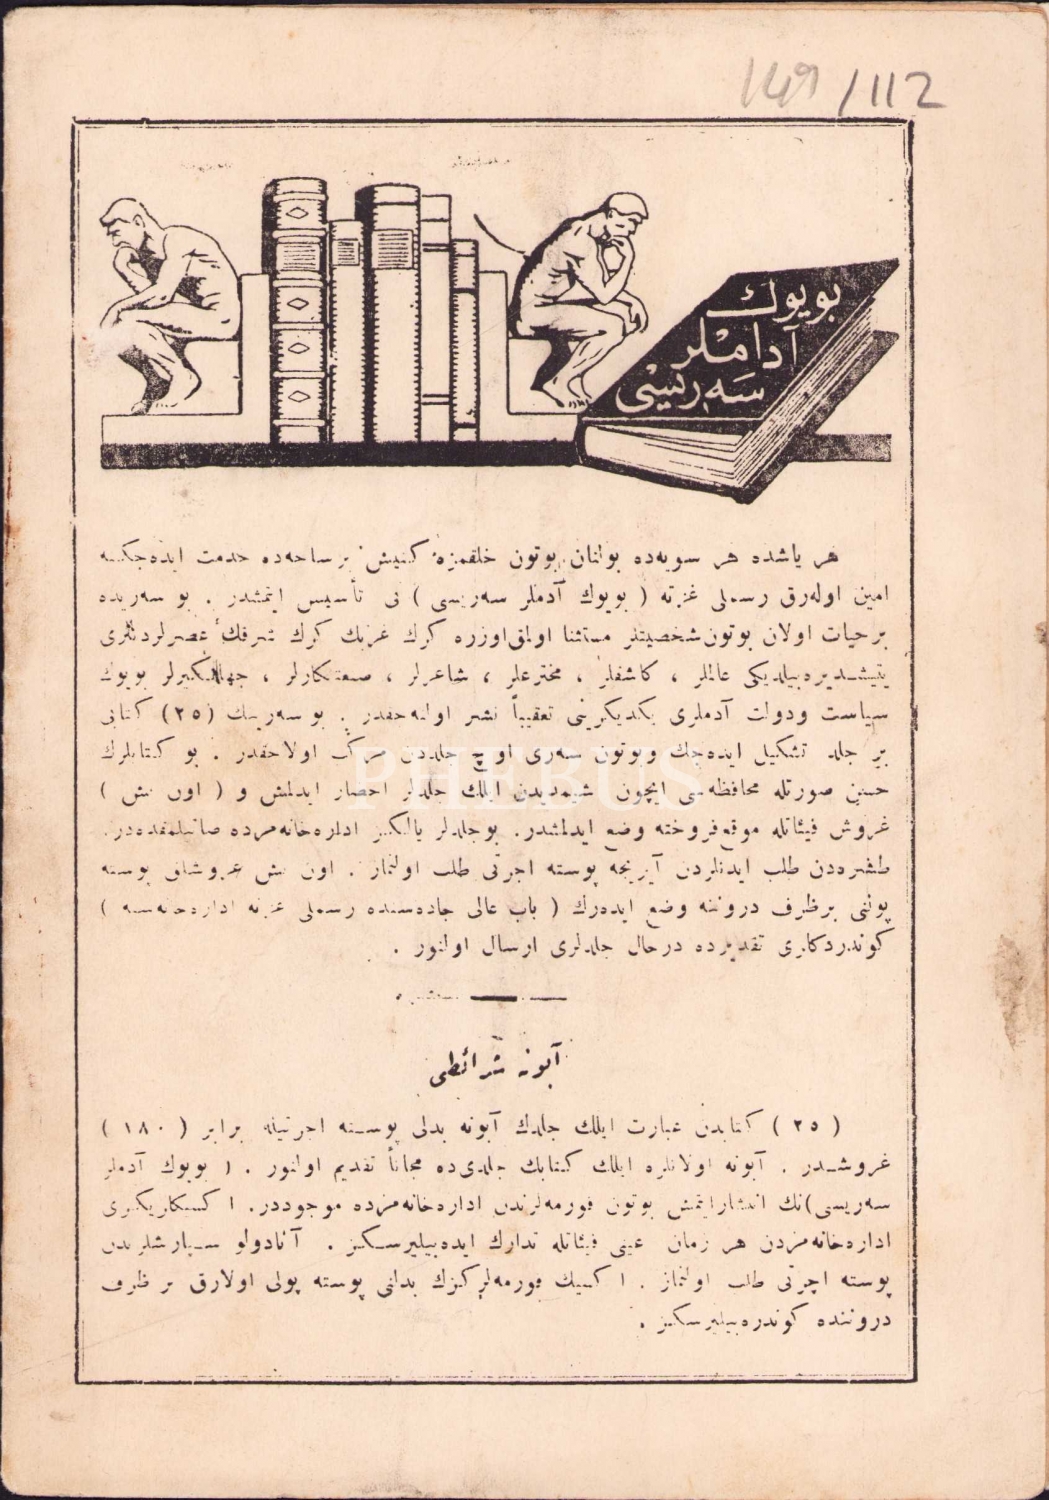 149/112
بویوك
آداملر
سه‌ریسی
هر یاشده هر سویه‌ده بولنان بوتون خلقمزه کنیش بر ساحه‌ده خدمت ایده‌جکنه
امین اوله‌رق رسملی غزته ( بویوك آدملر سه‌ریسی ) نی تأسیس ایتمشدر . بو سه‌ریده
برحیات اولان بوتون شخصیتلر مستثنا اولمق اوزره کرك غربك کرك شرقك عصرلردنبری
یتیشدیره‌بیلدیکی عالملر ، کاشفلر ، مخترعلر ، شاعرلر ، صنعتکارلر ، جهانکیرلر بویوك
سیاست ودولت آدملری یکدیکرینی تعقیباً نشر اولنه‌جقدر . بو سه‌رینك (٢٥) کتابی
بر جلد تشکیل ایده‌جك وبوتون سه‌ری اوچ جلددن مرکب اولاجقدر . بو کتابلرك
حسن صورتله محافظه‌سی ایچون شیمدیدن ایلك جلدلر احضار ایدلمش و ( اون بش )
غروش فیئاتله موقع فروخته وضع ایدلمشدر. بوجلدلر یالکیز اداره‌خانه‌مزده صاتیلمقده‌در.
طشره‌دن طلب ایدنلردن آیریجه پوسته اجرتی طلب اولنماز . اون بش غروشلق پوسته
پولنی برظرف درونه وضع ایده‌رك ( باب عالی جاده‌سنده رسملی غزته اداره‌خانه‌سنه )
کوندردکلری تقدیرده درحال جلدلری ارسال اولنور .
آبونه شرائطی
( ٢٥ ) کتابدن عبارت ایلك جلدك آبونه بدلی پوسته اجرتیله برابر ( ١٨٠ )
غروشدر . آبونه اولانلره ایلك کتابك جلدی‌ده مجاناً تقدیم اولنور . ( بویوك آدملر
سه‌ریسی)نك انتشار ایتمش بوتون فورمه‌لرندن اداره‌خانه‌مزده موجوددر. اکسیکلریکزی
اداره‌خانه‌مزدن هر زمان عینی فیئاتله تدارك ایده‌بیلیرسکز . آنادولو سپارشلرندن
پوسته اجرتی طلب اولنماز . اکسیك فورمه‌لرکزك بدلنی پوسته پولی اولارق بر ظرف
دروننده کوندره‌بیلیرسکز .
PHEBUS